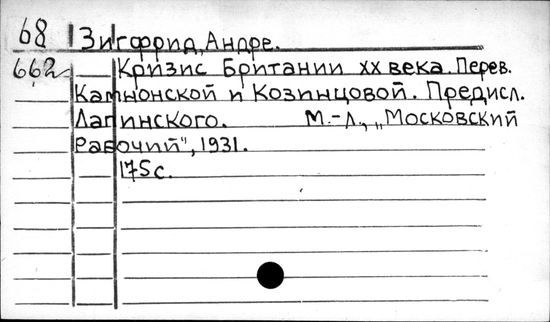 68 Зигфрид, Андре.
662 Кризис Британии XX века. Перев.
Каминонской и Козинцовой. Предисл.
Лапинского. М.-Л., „Московский
Рабочий", 1931.
175 с.